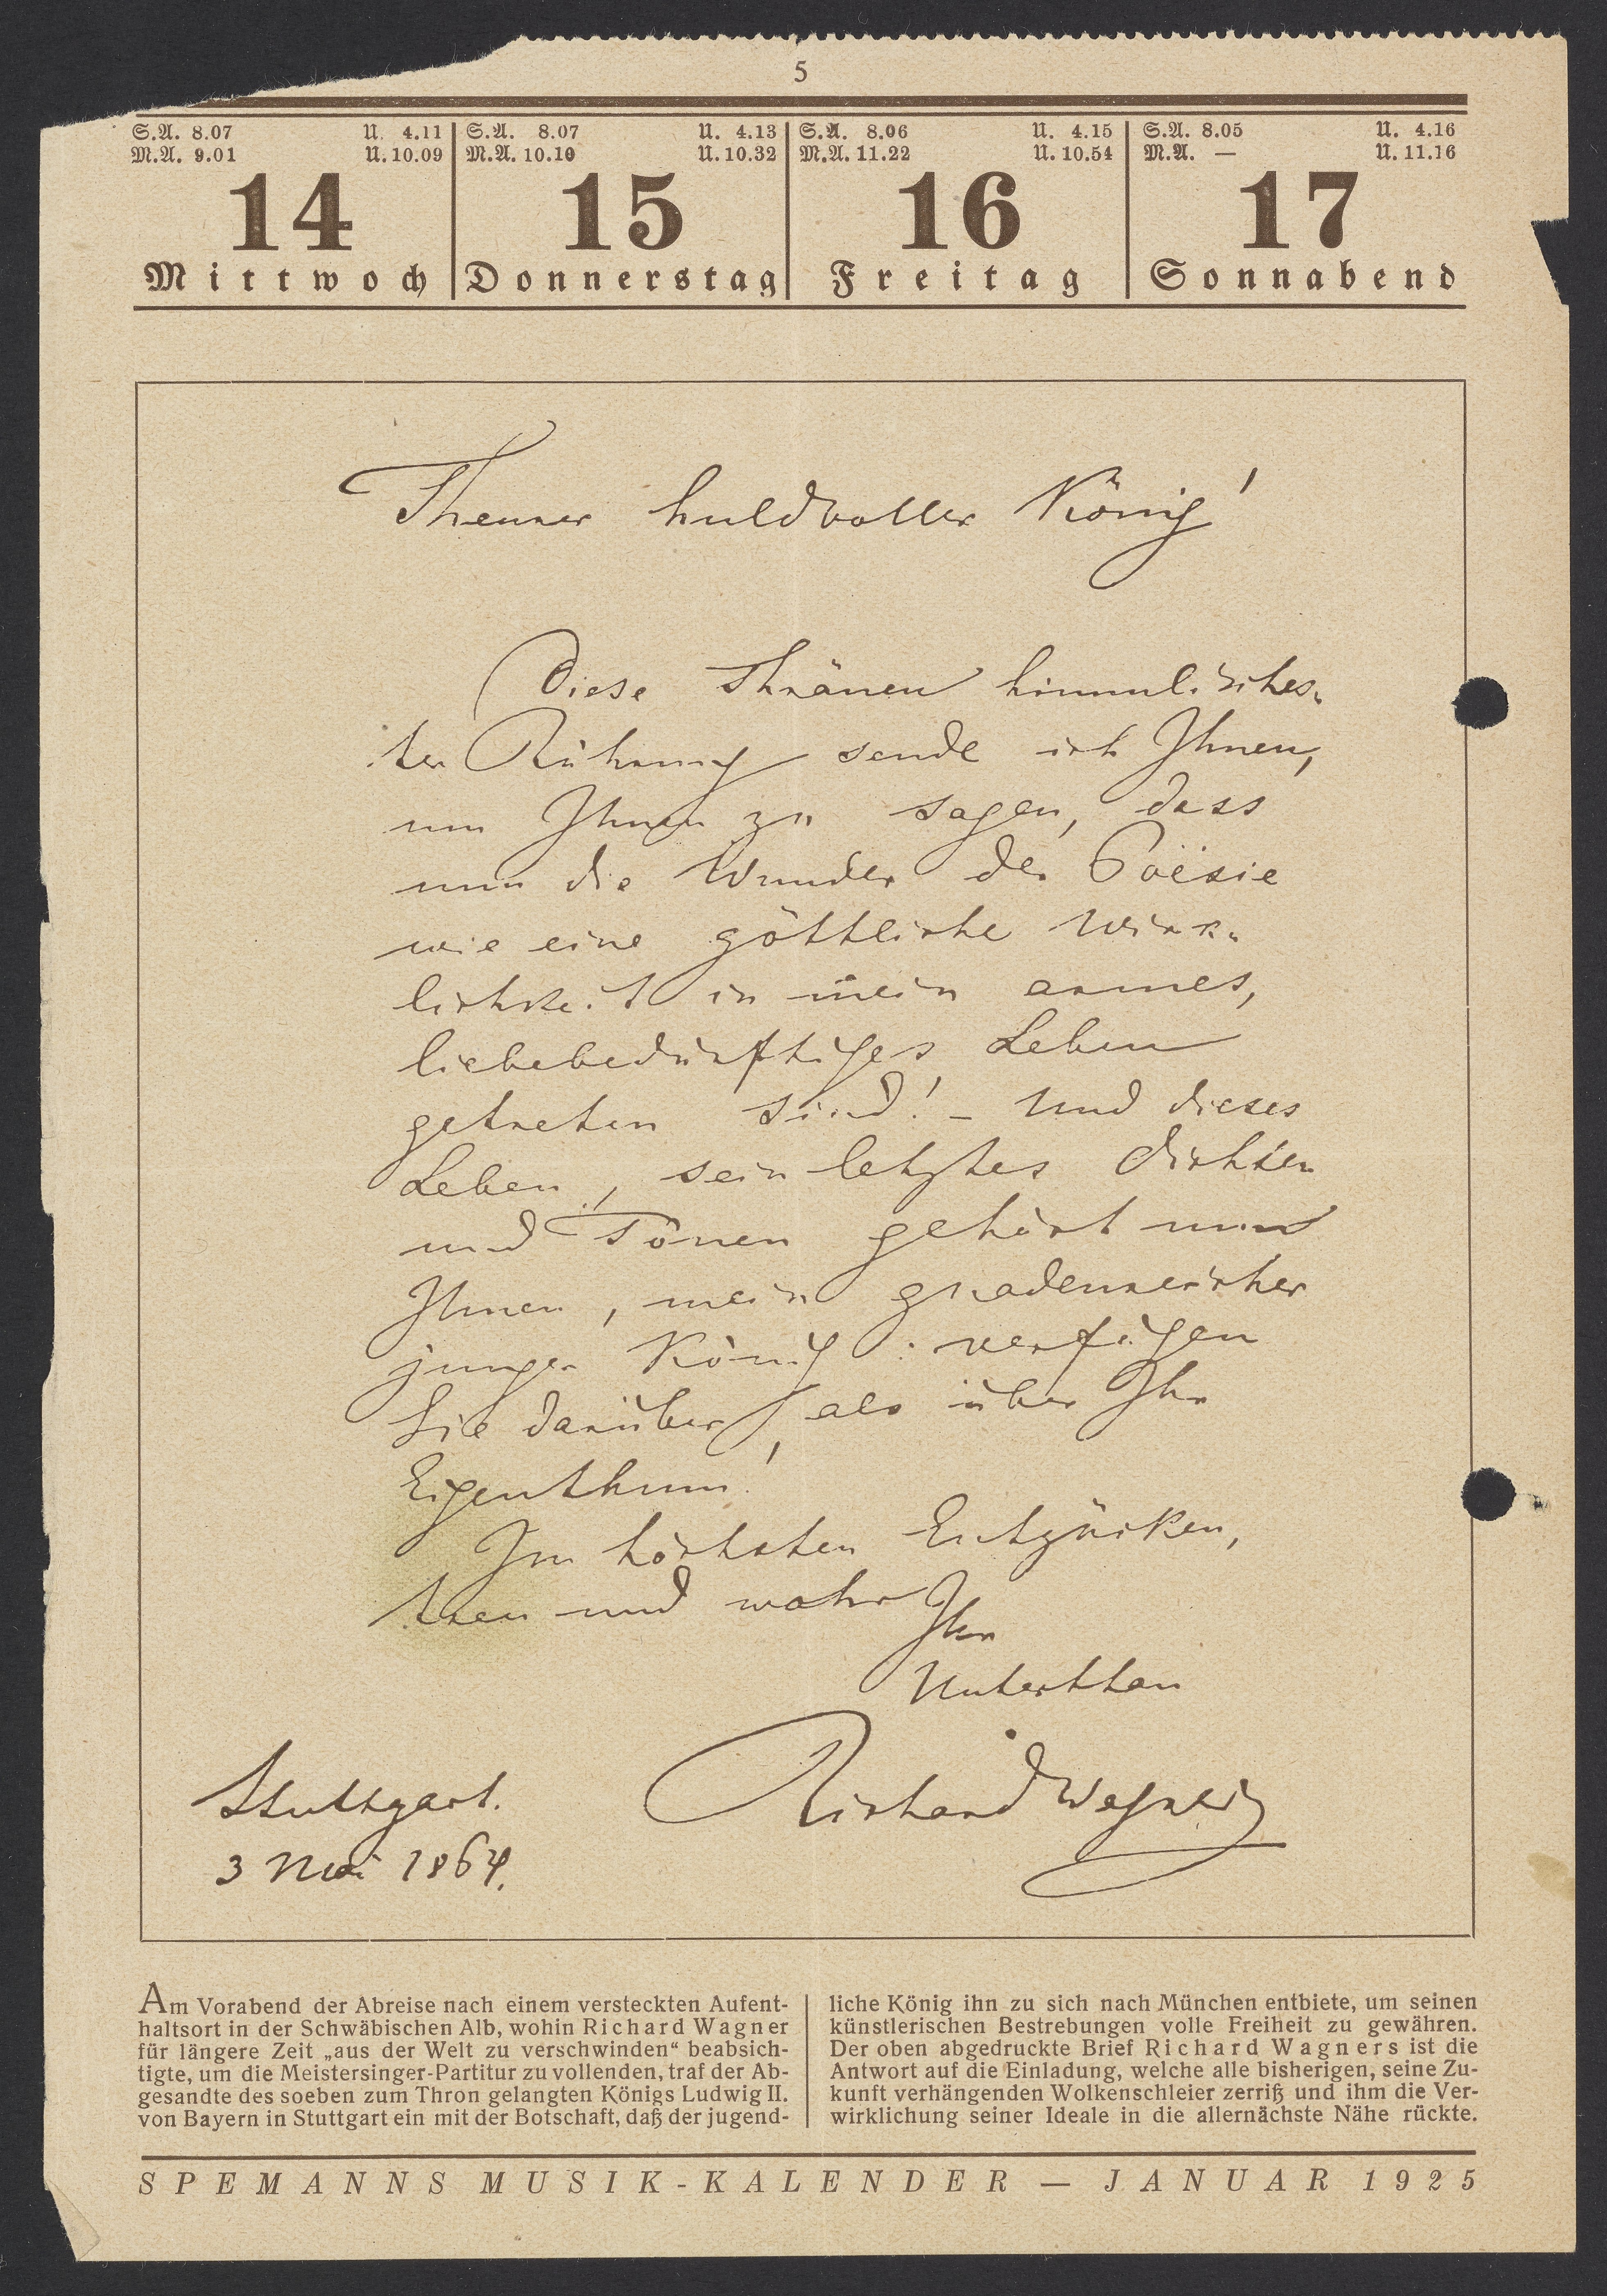 5
S.A. 8.07 U. 4.11
M.A. 9.01 U. 10.09
14
Mittwoch
S.A. 8.07 U. 4.13
M.A. 10.10 U. 10.32
15
Donnerstag
S.A. 8.06 U. 4.15
M.A. 11.22 U. 10.54
16
Freitag
S.A. 8.05 U. 4.16
M.A. — U. 11.16
17
Sonnabend
Theurer huldvoller König!
Diese Thränen himmlisches-
ter Rührung sende ich Ihnen,
um Ihnen zu sagen, dass
nun die Wunder der Poësie
wie eine göttliche Wirk-
lichkeit in mein armes,
liebebedürftiges Leben
getreten sind! – Und dieses
Leben, sein letztes Dichten
und Tönen gehört nun
Ihnen, mein gnadenreicher
junger König: verfügen
Sie darüber, als über Ihr
Eigenthum!
Im höchsten Entzücken,
treu und wahr
Ihr
Unterthan
Richard Wagner
Stuttgart.
3 Mai 1864.
Am Vorabend der Abreise nach einem versteckten Aufent-
haltsort in der Schwäbischen Alb, wohin Richard Wagner
für längere Zeit „aus der Welt zu verschwinden“ beabsich-
tigte, um die Meistersinger-Partitur zu vollenden, traf der Ab-
gesandte des soeben zum Thron gelangten Königs Ludwig II.
von Bayern in Stuttgart ein mit der Botschaft, daß der jugend-
liche König ihn zu sich nach München entbiete, um seinen
künstlerischen Bestrebungen volle Freiheit zu gewähren.
Der oben abgedruckte Brief Richard Wagners ist die
Antwort auf die Einladung, welche alle bisherigen, seine Zu-
kunft verhängenden Wolkenschleier zerriß und ihm die Ver-
wirklichung seiner Ideale in die allernächste Nähe rückte.
SPEMANNS MUSIK-KALENDER — JANUAR 1925